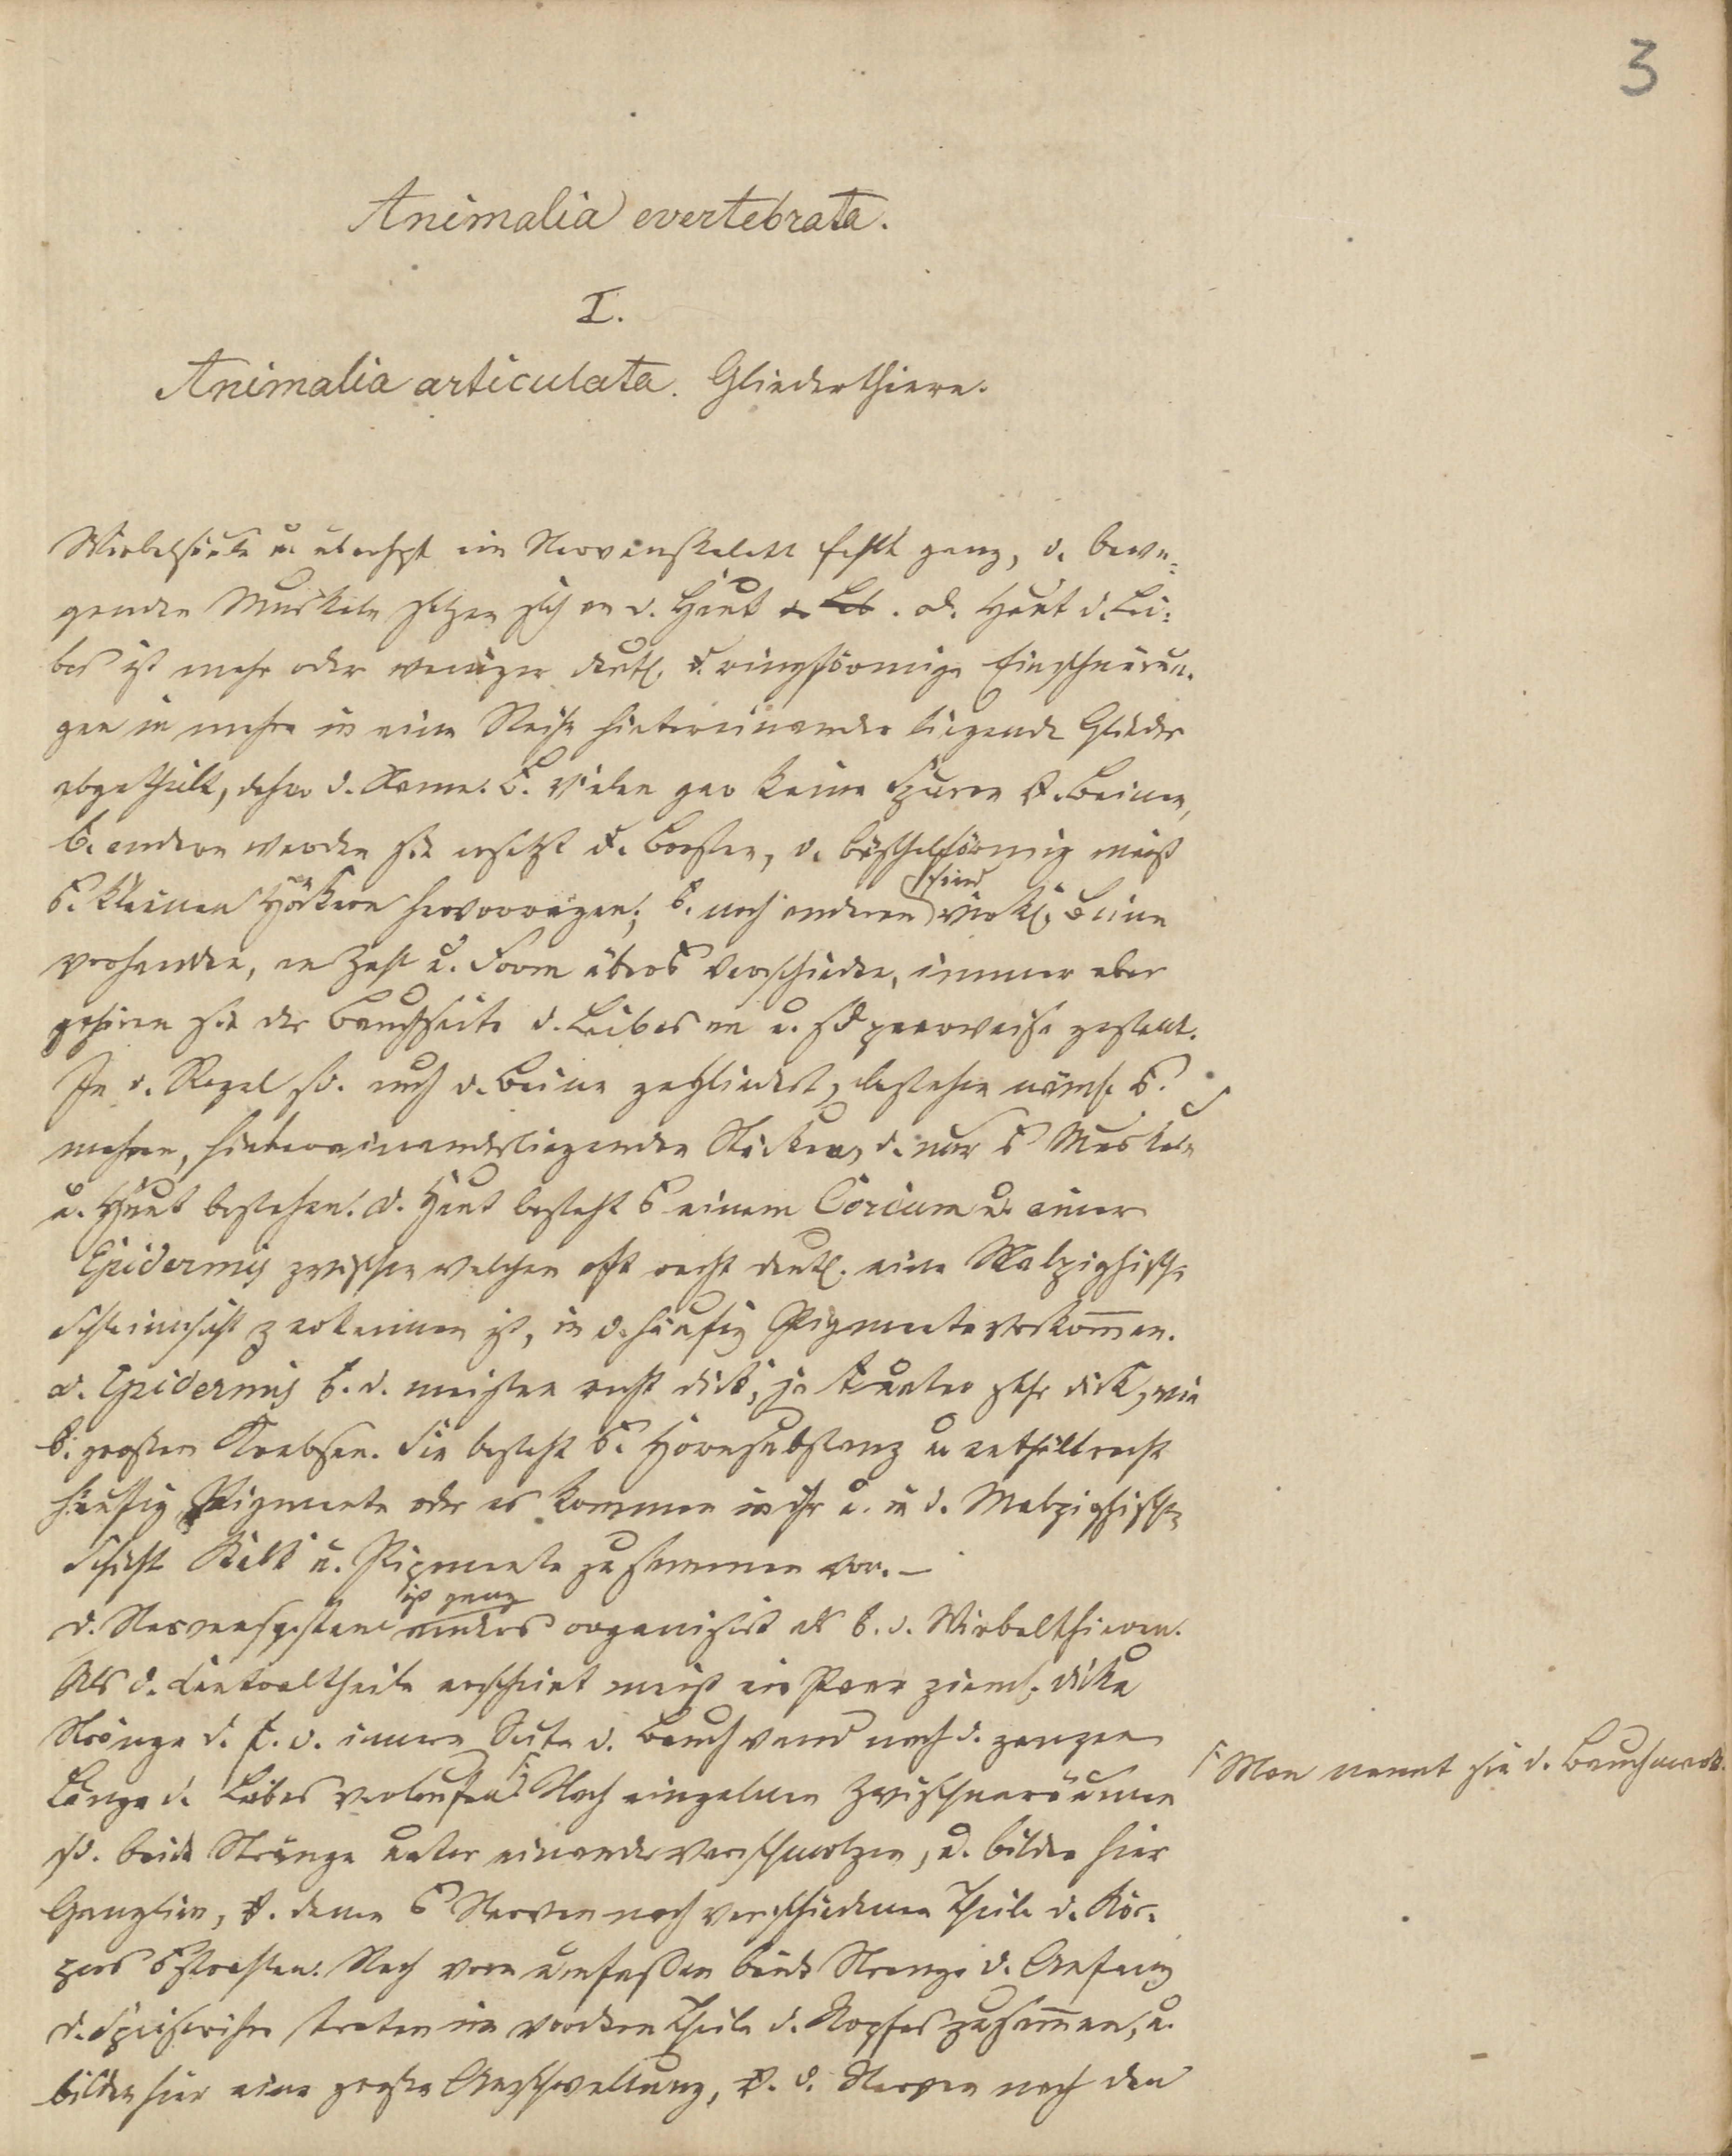 3
Animalia evertebrata.
I.
Animalia articulata. Gliederthiere.
Wirbelsäule u. überhpt ein Nervenskelett fehlt ganz, d. bewe-
genden Muskeln setzen sich an d. Haut. D. Haut d. Lei-
bes ist mehr oder weniger deutl. ringförmige Einschnürun-
gen in mehre in eine Reihe hintereinander liegende Glieder
abgetheilt, daher d. Name. B. vielen gar keine Spuren v. Beinen,
b. andern werden sie ersetzt d. Borsten, d. büschelförmig meist
kleinen Höckern hervorragen; b. noch anderen sind wirkl. Beine
vorhanden, an Zahl u. Form überaus verschieden, immer aber
gehören sie der Bauchseite d. Leibes an u. sd paarweise gestellt.
In d. Regel sd. auch d. Beine gegliedert, bestehen näml. aus
mehren, hintereinanderliegenden Stücken, d. nur aus Muskeln
u. Haut bestehen. D. Haut besteht aus einem Corium u. einer
Epidermis zwischen welchen oft recht deutl. eine Malpighische
Schleimschicht z erkennen ist, in d. häufig Pigmente vorkom̅en.
D. Epidermis b. d. meisten recht dick, ja mitunter sehr dick, wie
b. großen Krebsen. Sie besteht aus Hornsubstanz u enthält recht
häufig Pigmente oder es kommen in ihr u. in d. Malpighischen
Schicht Kalk u. Pigmente zusammen vor. –
D. Nervensystem ist ganz anders organisirt als b. d. Wirbelthieren.
Als d. Centraltheile erscheint meist ein Paar zieml. dicke
Stränge d. a. d. innern Seite d. Bauchwand nach d. ganzen
Länge d. Leibes verlaufen. Nach einzelnen Zwischenräumen
Man nennt sie d. Bauchmark.
sd. beide Stränge unter einander verschmolzen, u. bilden hier
Ganglien, v. denen aus Nerven nach verschiedenen Theile d. Kör-
pers ausstrahlen. Nach vorn umfaßen beide Stränge d. Anfang
d. Speiseröhre treten im vordern Theile d. Kopfes zusam̅en, u.
bilden hier eine große Anschwellung, v. d. Nerven nach den